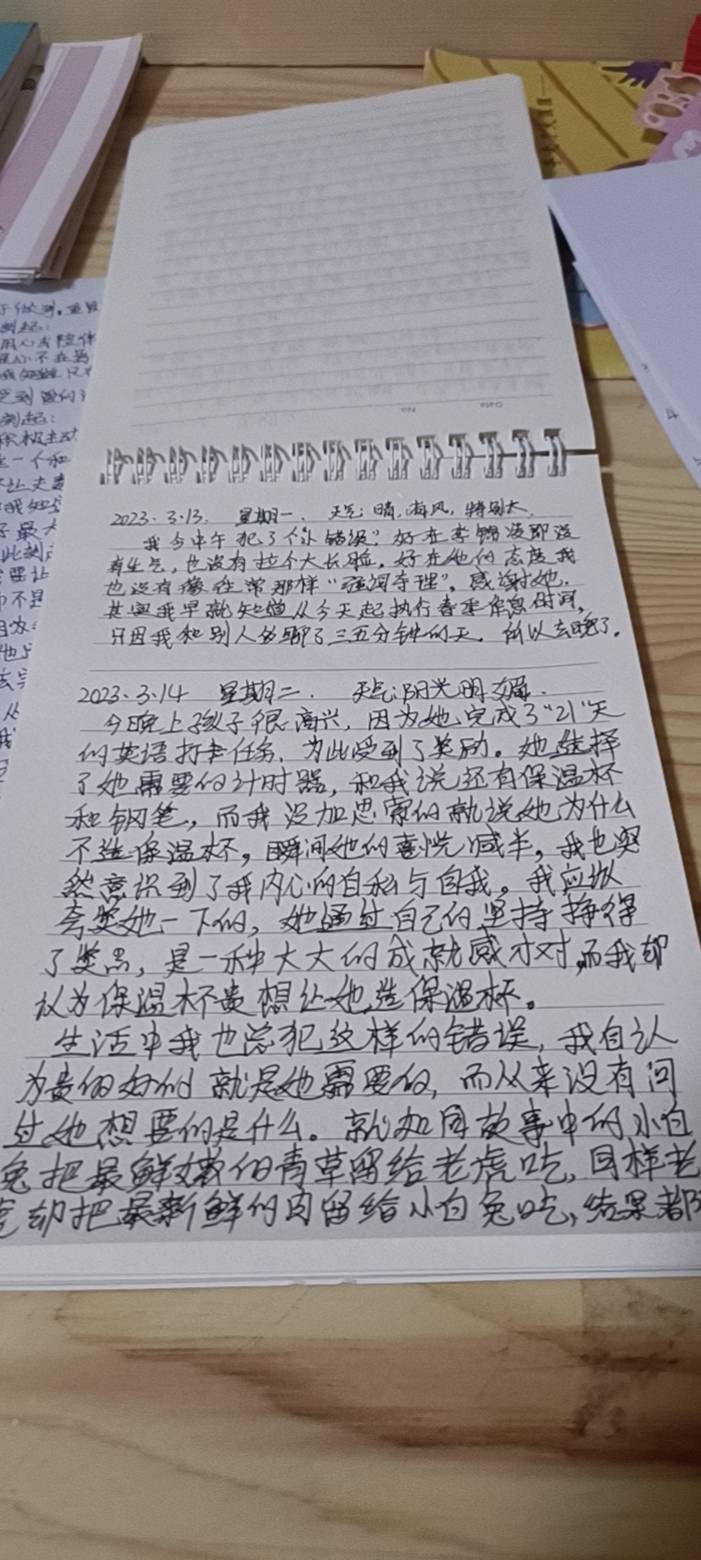 2023.3.13. 星期一. 天气:晴,有风,特别大.
我今中午犯了个小错误?好在李锦凌即没
有生气,也没有拉个大长脸,好在她的态度我
也没有像往常那样“强词夺理”。感谢她.
其实我早就知道从今天起执行春季作息时间,
只因我和别人多聊了三五分钟的天.所以去晚了.
2023.3.14 星期二. 天气:阳光明媚.
今晚上孩子很高兴,因为她完成了“21”天
的英语打卡任务.为此受到了奖励。她选择
了她需要的计时器,和我说还有保温杯
和钢笔,而我没加思索的就说她为什么
不选保温杯,瞬间她的喜悦减半,我也突
然意识到了我内心的自私与自我。我应从
夸奖她一下的,她通过自己的坚持挣得
了奖品,是一种大大的成就感才对,而我却
认为保温杯贵想让她选保温杯。
生活中我也总犯这样的错误,我自认
为贵的好的就是她需要的,而从来没有问
过她想要的是什么。就如同故事中的小白
兔把最鲜嫩的青草留给老虎吃,同样老
虎却把最新鲜的肉留给小白兔吃,结果都
Date
No